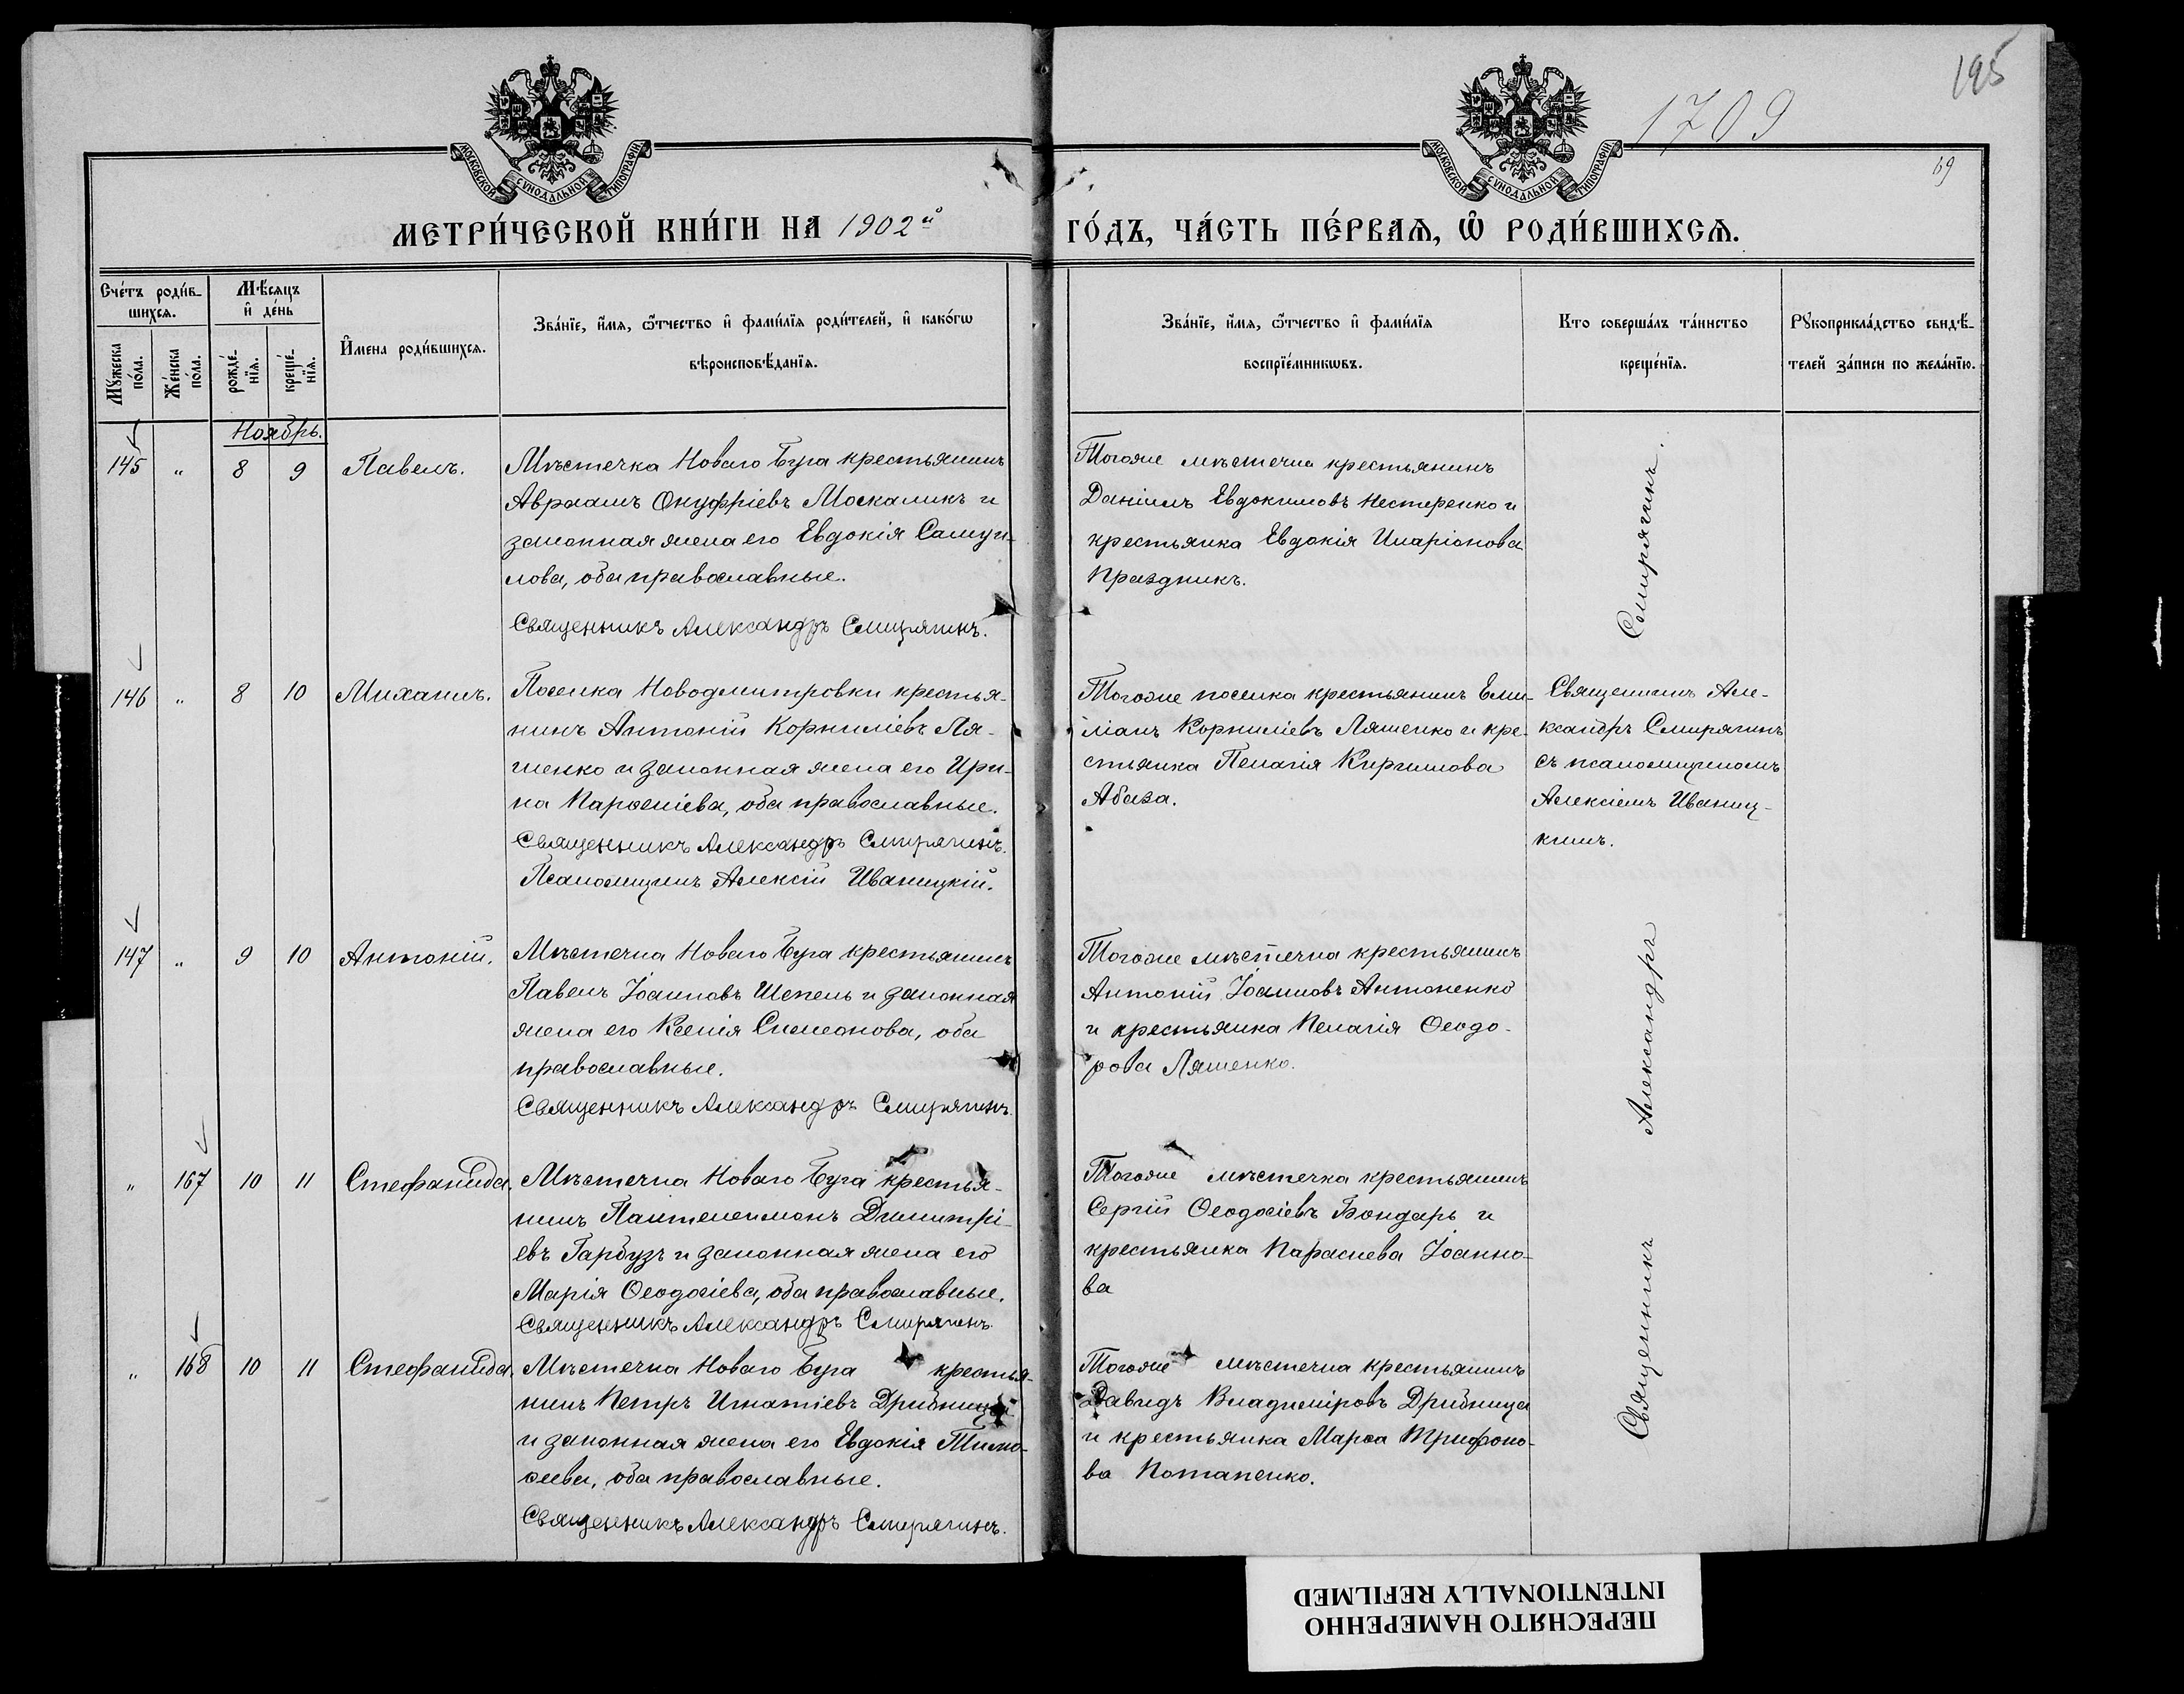 195
1709
69
МОСКОВСКОЙ СѴНОДАЛЬНОЙ ТИПОГРАФІИ
МОСКОВСКОЙ СѴНОДАЛЬНОЙ ТИПОГРАФІИ
МЕТРИ́ЧЕСКОЙ КНИ́ГИ НА 1902й
ГО́ДЪ, ЧА́СТЬ ПЕ́РВАѦ, Ѡ҆ РОДИ́ВШИХСѦ.
Сче́тъ роди́в-
шихсѧ.
Мꙋ́жеска по́ла.
Же́нска по́ла.
Мѣ́сѧцъ
и҆ де́нь
рожде́-
нїѧ.
креще́-
нїѧ.
И҆мена роди́вшихсѧ.
Зва́нїе, и҆́мѧ, ѻ҆́тчество и҆ фами́лїѧ роди́телей, и҆ како́гѡ
вѣроисповѣ́данїѧ.
Зва́нїе, и҆́мѧ, ѻ҆́тчество и҆ фами́лїѧ
воспрїе́мникѡвъ.
Кто соверша́лъ та́инство
креще́нїѧ.
Рꙋкоприкла́дство свидѣ́-
телей за́писи по жела́нїю.
Ноябрь.
145 „ 8 9 Павелъ.
Мѣстечка Новаго Буга крестьянинъ
Авраамъ Онуфріевъ Москаликъ и
законная жена его Евдокія Самуи-
лова, оба православные.
Священникъ Александръ Смирягинъ.
Тогоже мѣстечка крестьянинъ
Даніилъ Евдокимовъ Нестеренко и
крестьянка Евдокія Иларіонова
Праздникъ.
146 „ 8 10 Михаилъ.
Поселка Новодмитровки крестья-
нинъ Антоній Корниліевъ Ля-
шенко и законная жена его Ири-
на Парѳеніева, оба православные.
Священникъ Александръ Смирягинъ.
Псаломщикъ Алексій Иваницкій.
Тогоже поселка крестьянинъ Еми-
ліанъ Корниліевъ Ляшенко и кре-
стьянка Пелагія Кириллова
Абаза.
Священникъ Але-
ксандръ Смирягинъ
съ псаломщикомъ
Алексіемъ Иваниц-
кимъ.
147 „ 9 10 Антоній.
Мѣстечка Новаго Буга крестьянинъ
Павелъ Іоанновъ Шепель и законная
жена его Ксенія Симеонова, оба
православные.
Священникъ Александръ Смирягинъ.
Тогоже мѣстечка крестьянинъ
Антоній Іоанновъ Антоненко
и крестьянка Пелагія Ѳеодо-
рова Ляшенко.
„ 167 10 11 Стефанида.
Мѣстечка Новаго Буга крестья-
нинъ Пантелеимонъ Димитрі-
евъ Гарбузъ и законная жена его
Марія Ѳеодосіева, оба православные.
Священникъ Александръ Смирягинъ.
Тогоже мѣстечка крестьянинъ
Сергій Ѳеодосіевъ Бондарь и
крестьянка Параскева Іоанно-
ва
„ 168 10 11 Стефанида.
Мѣстечка Новаго Буга крестья-
нинъ Петръ Игнатіевъ Дрибница
и законная жена его Евдокія Тимо-
ѳеева, оба православные.
Священникъ Александръ Смирягинъ.
Тогоже мѣстечка крестьянинъ
Давидъ Владиміровъ Дрибница
и крестьянка Марѳа Трифоно-
ва Потапенко.
Священникъ Александръ Смирягинъ.
ПЕРЕСНЯТО НАМЕРЕННО
INTENTIONALLY REFILMED